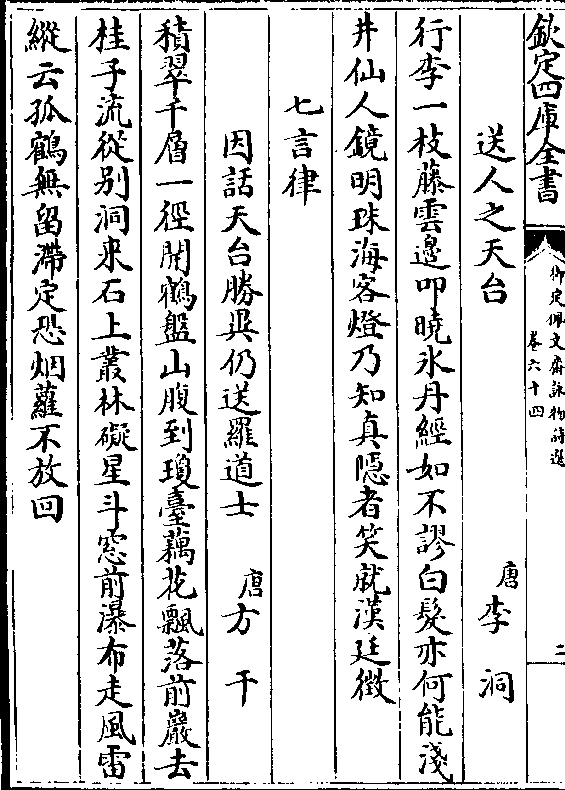 欽定四庫全書
御定佩文齋詠物詩選
卷六十四
二
送人之天台
唐
李洞
行李一枝藤雲邊叩曉氷丹經如不謬白髮亦何能淺
井仙人鏡明珠海客燈乃知真隱者笑就漢廷徵
七言律
因話天台勝異仍送羅道士
唐
方干
積翠千層一徑開鶴盤山腹到瓊臺藕花飄落前巖去
桂子流從别洞來石上叢林礙星斗窓前瀑布走風雷
縱云孤鶴無留滯定恐烟蘿不放回